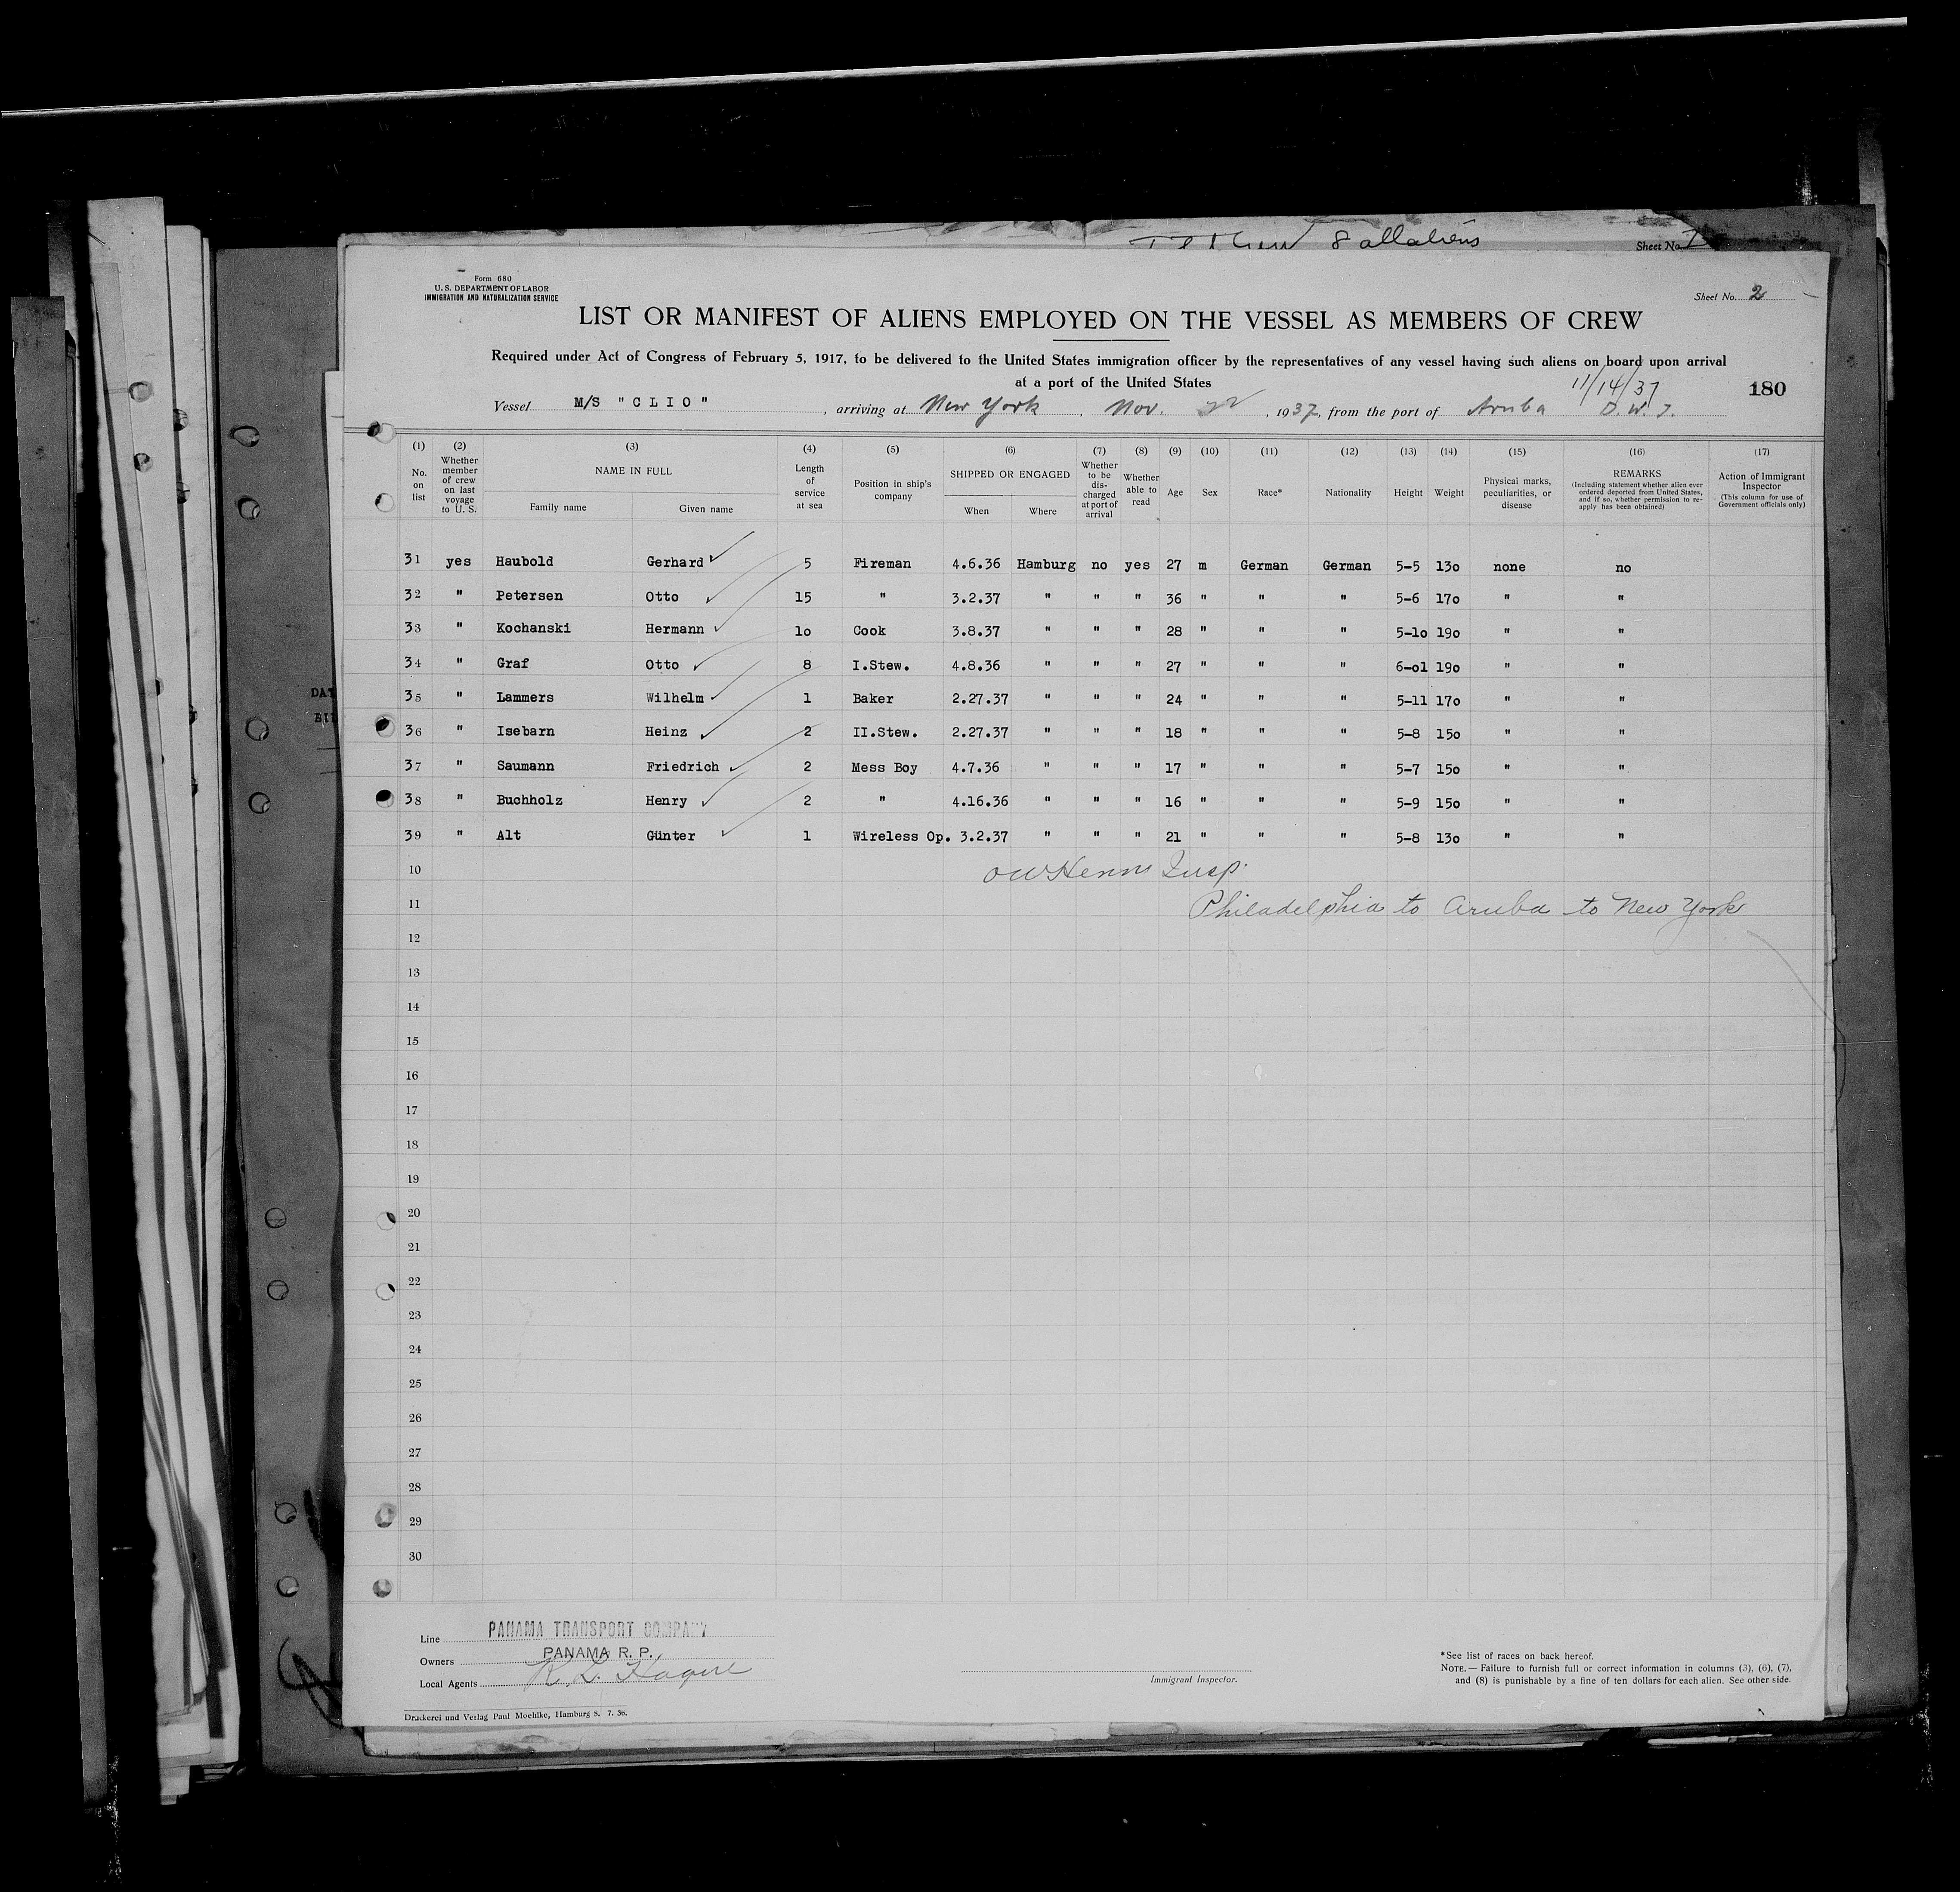 8 allaliens
Sheet No.
Form 680
U. S. DEPARTMENT OF LABOR
IMMIGRATION AND NATURALIZATION SERVICE
Sheet No. 2
LIST OR MANIFEST OF ALIENS EMPLOYED ON THE VESSEL AS MEMBERS OF CREW
Required under Act of Congress of February 5, 1917, to be delivered to the United States immigration officer by the representatives of any vessel having such aliens on board upon arrival
at a port of the United States
11/14/37
180
Vessel M/S "CLIO", arriving at New York, Nov. 22, 1937, from the port of Aruba D.W.I.
(1) (2) (3) (4) (5) (6) (7) (8) (9) (10) (11) (12) (13) (14) (15) (16) (17)
No. on list
Whether member of crew on last voyage to U. S.
NAME IN FULL
Family name
Given name
Length of service at sea
Position in ship's company
SHIPPED OR ENGAGED
When
Where
Whether to be discharged at port of arrival
Whether able to read
Age
Sex
Race*
Nationality
Height
Weight
Physical marks, peculiarities, or disease
REMARKS
(Including statement whether alien ever ordered deported from United States, and if so, whether permission to reapply has been obtained)
Action of Immigrant Inspector
(This column for use of Government officials only)
31 yes Haubold Gerhard 5 Fireman 4.6.36 Hamburg no yes 27 m German German 5-5 13o none no
32 " Petersen Otto 15 " 3.2.37 " " " 36 " " " 5-6 17o " "
33 " Kochanski Hermann 1o Cook 3.8.37 " " " 28 " " " 5-1o 19o " "
34 " Graf Otto 8 I.Stew. 4.8.36 " " " 27 " " " 6-o1 19o " "
35 " Lammers Wilhelm 1 Baker 2.27.37 " " " 24 " " " 5-11 17o " "
36 " Isebarn Heinz 2 II.Stew. 2.27.37 " " " 18 " " " 5-8 15o " "
37 " Saumann Friedrich 2 Mess Boy 4.7.36 " " " 17 " " " 5-7 15o " "
38 " Buchholz Henry 2 " 4.16.36 " " " 16 " " " 5-9 15o " "
39 " Alt Günter 1 Wireless Op. 3.2.37 " " " 21 " " " 5-8 13o " "
10 Insp.
11 Philadelphia to Aruba to New York
12
13
14
15
16
17
18
19
20
21
22
23
24
25
26
27
28
29
30
Line PANAMA TRANSPORT COMPANY
Owners PANAMA R. P.
Local Agents
Immigrant Inspector.
*See list of races on back hereof.
NOTE.— Failure to furnish full or correct information in columns (3), (6), (7),
and (8) is punishable by a fine of ten dollars for each alien. See other side.
Druckerei und Verlag Paul Moehlke, Hamburg 8. 7. 36.